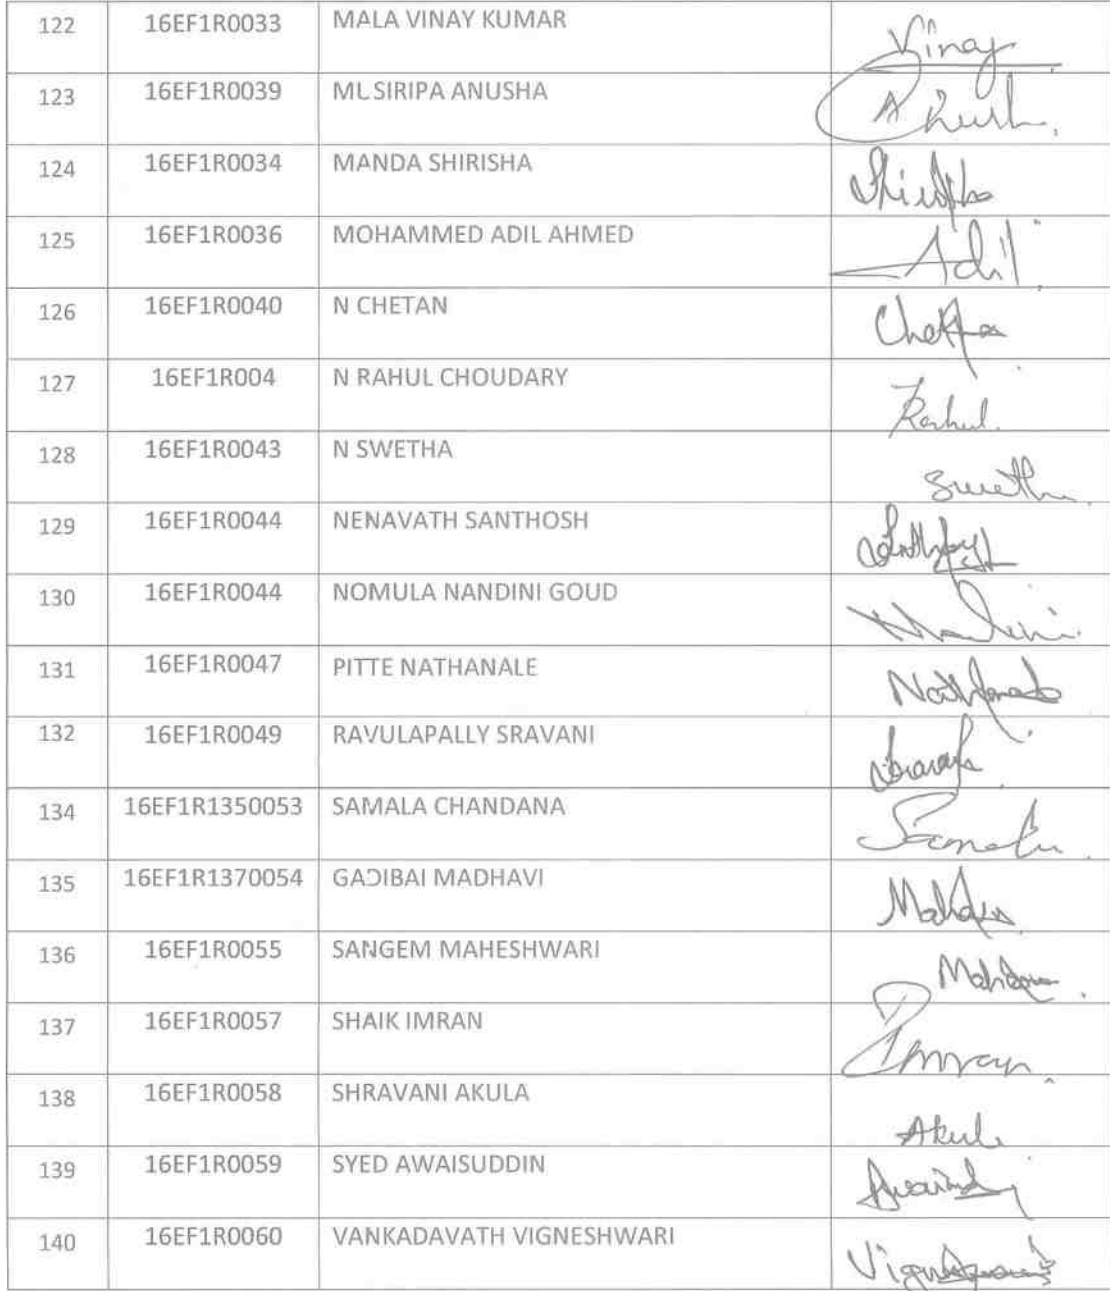 122 16EF1R0033 MALA VINAY KUMAR Vinay
123 16EF1R0039 MUSIRIPA ANUSHA
124 16EF1R0034 MANDA SHIRISHA
125 16EF1R0036 MOHAMMED ADIL AHMED Adil
126 16EF1R0040 N CHETAN
127 16EF1R004 N RAHUL CHOUDARY Rahul.
128 16EF1R0043 N SWETHA Swetha
129 16EF1R0044 NENAVATH SANTHOSH
130 16EF1R0044 NOMULA NANDINI GOUD
131 16EF1R0047 PITTE NATHANALE
132 16EF1R0049 RAVULAPALLY SRAVANI
134 16EF1R1350053 SAMALA CHANDANA
135 16EF1R1370054 GADIBAI MADHAVI
136 16EF1R0055 SANGEM MAHESHWARI
137 16EF1R0057 SHAIK IMRAN Imran
138 16EF1R0058 SHRAVANI AKULA Akula
139 16EF1R0059 SYED AWAISUDDIN
140 16EF1R0060 VANKADAVATH VIGNESHWARI